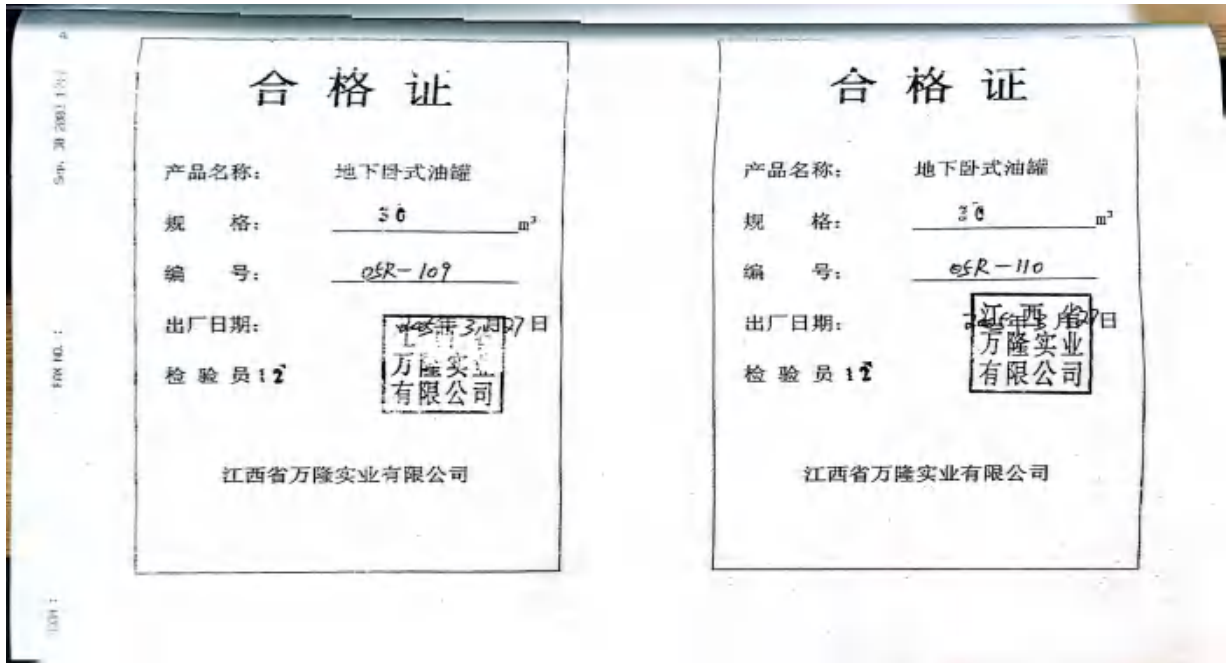 合格证
产品名称： 地下卧式油罐
规 格： 30 m³
编 号： 05R-109
出厂日期： 2005年3月27日
检验员 12
万隆实业
有限公司
江西省万隆实业有限公司
合格证
产品名称： 地下卧式油罐
规 格： 30 m³
编 号： 05R-110
出厂日期： 2005年3月27日
检验员 12
江西省
万隆实业
有限公司
江西省万隆实业有限公司
FAX NO. :